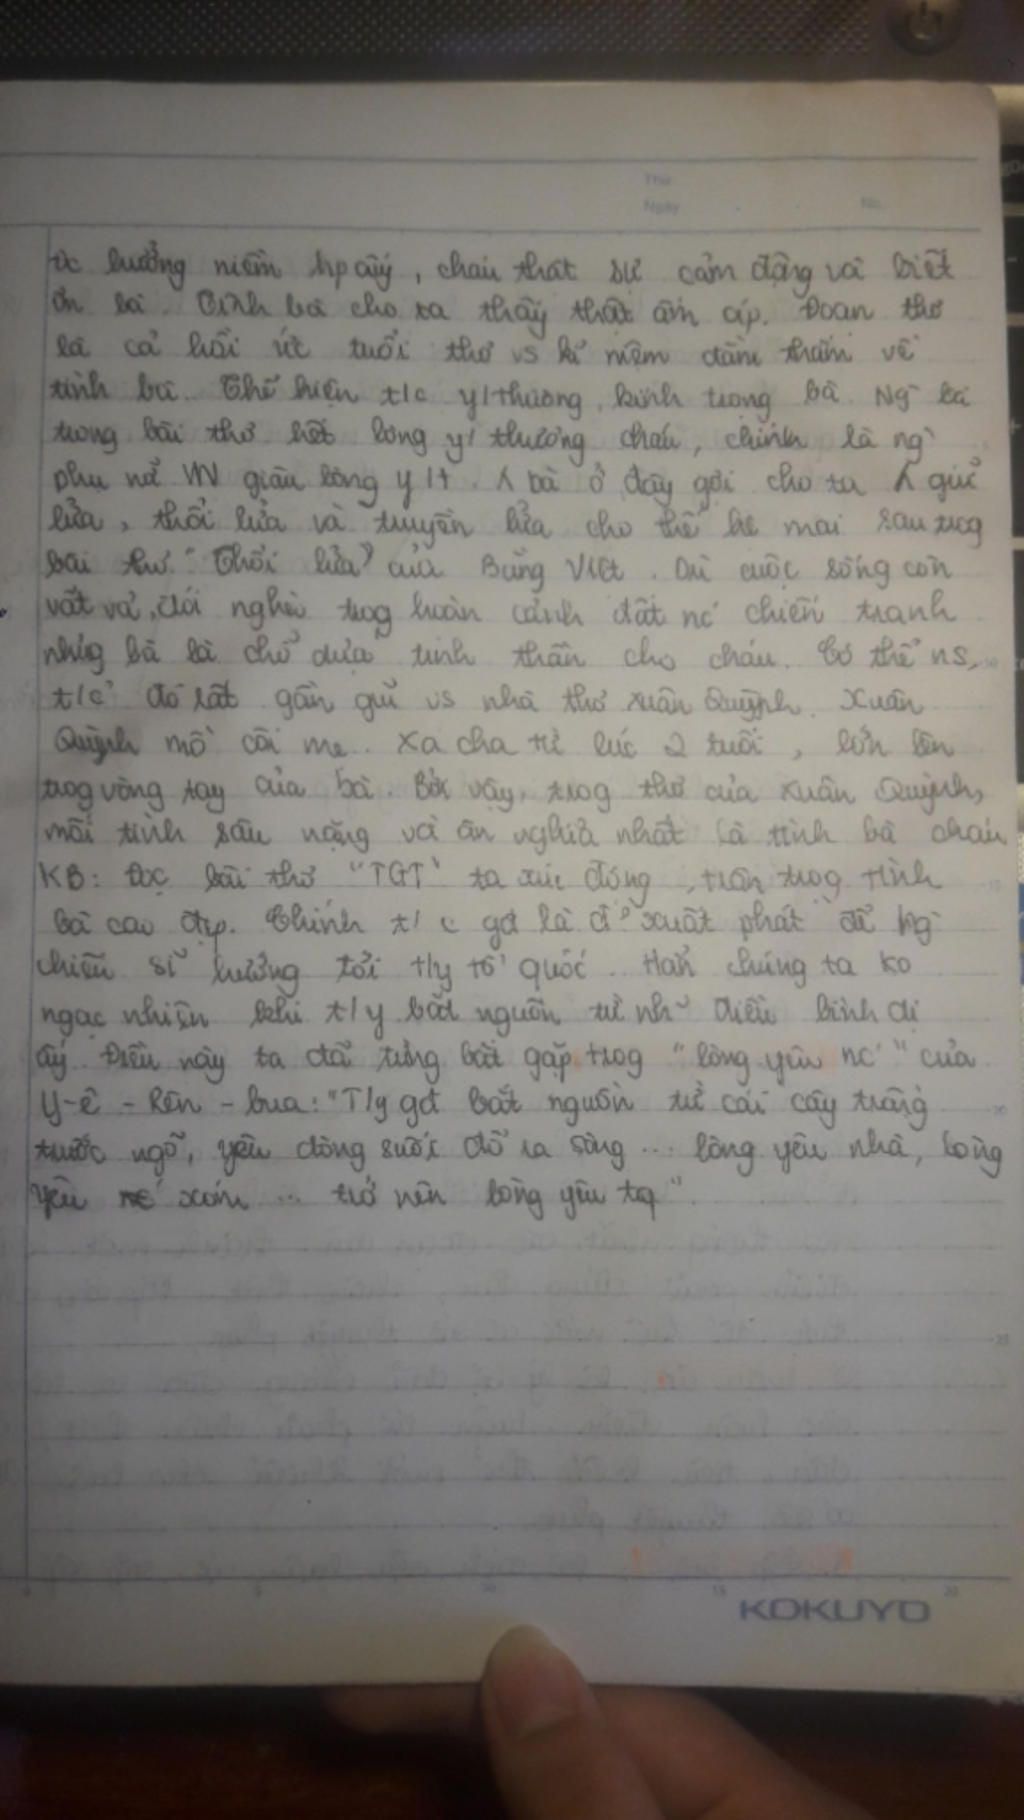 Thứ
Ngày No.
đc hưởng niềm hp ấy, cháu thật sự cảm động và biết
ơn bà. Tình bà cho ta thấy thật ấm áp. Đoạn thơ
là cả hồi ức tuổi thơ vs kỉ niệm đằm thắm về
tình bà. Thể hiện t/c y/thương, kính trọng bà. Ng` bà
trong bài thơ hết lòng y/ thương cháu, chính là ng`
phụ nữ VN giàu lòng y/t. bà ở đây gợi cho ta giữ
lửa, thổi lửa và truyền lửa cho thế hệ mai sau trog
bài thơ "Thổi lửa" của Bằng Việt. Dù cuộc sống còn
vất vả, đói nghèo trog hoàn cảnh đất nc' chiến tranh
nhưg bà là chỗ dựa tinh thần cho cháu. Có thể ns,
t/c' đó rất gần gũi vs nhà thơ Xuân Quỳnh. Xuân
Quỳnh mồ côi mẹ. Xa cha từ lúc 2 tuổi, lớn lên
trog vòng tay của bà. Bởi vậy, trog thơ của Xuân Quỳnh,
mối tình sâu nặng và ân nghĩa nhất là tình bà cháu
KB: Đọc bài thơ "TGT" ta xúc động, trân trọg tình
bà cao đẹp. Chính t/c gđ là xuất phát để ng`
chiến sĩ hướng tới t/y tổ quốc. Hẳn chúng ta ko
ngạc nhiên khi t/y bắt nguồn từ nh~ điều bình dị
ấy. Điều này ta đã từng bắt gặp trog "lòng yêu nc'" của
Y-ê-Rên-bua: "T/y gđ bắt nguồn từ cái cây trồng
trước ngõ, yêu dòng suối đổ ra sông... lòng yêu nhà, lòng
yêu xóm ... trở nên lòng yêu tq"
KOKUYO